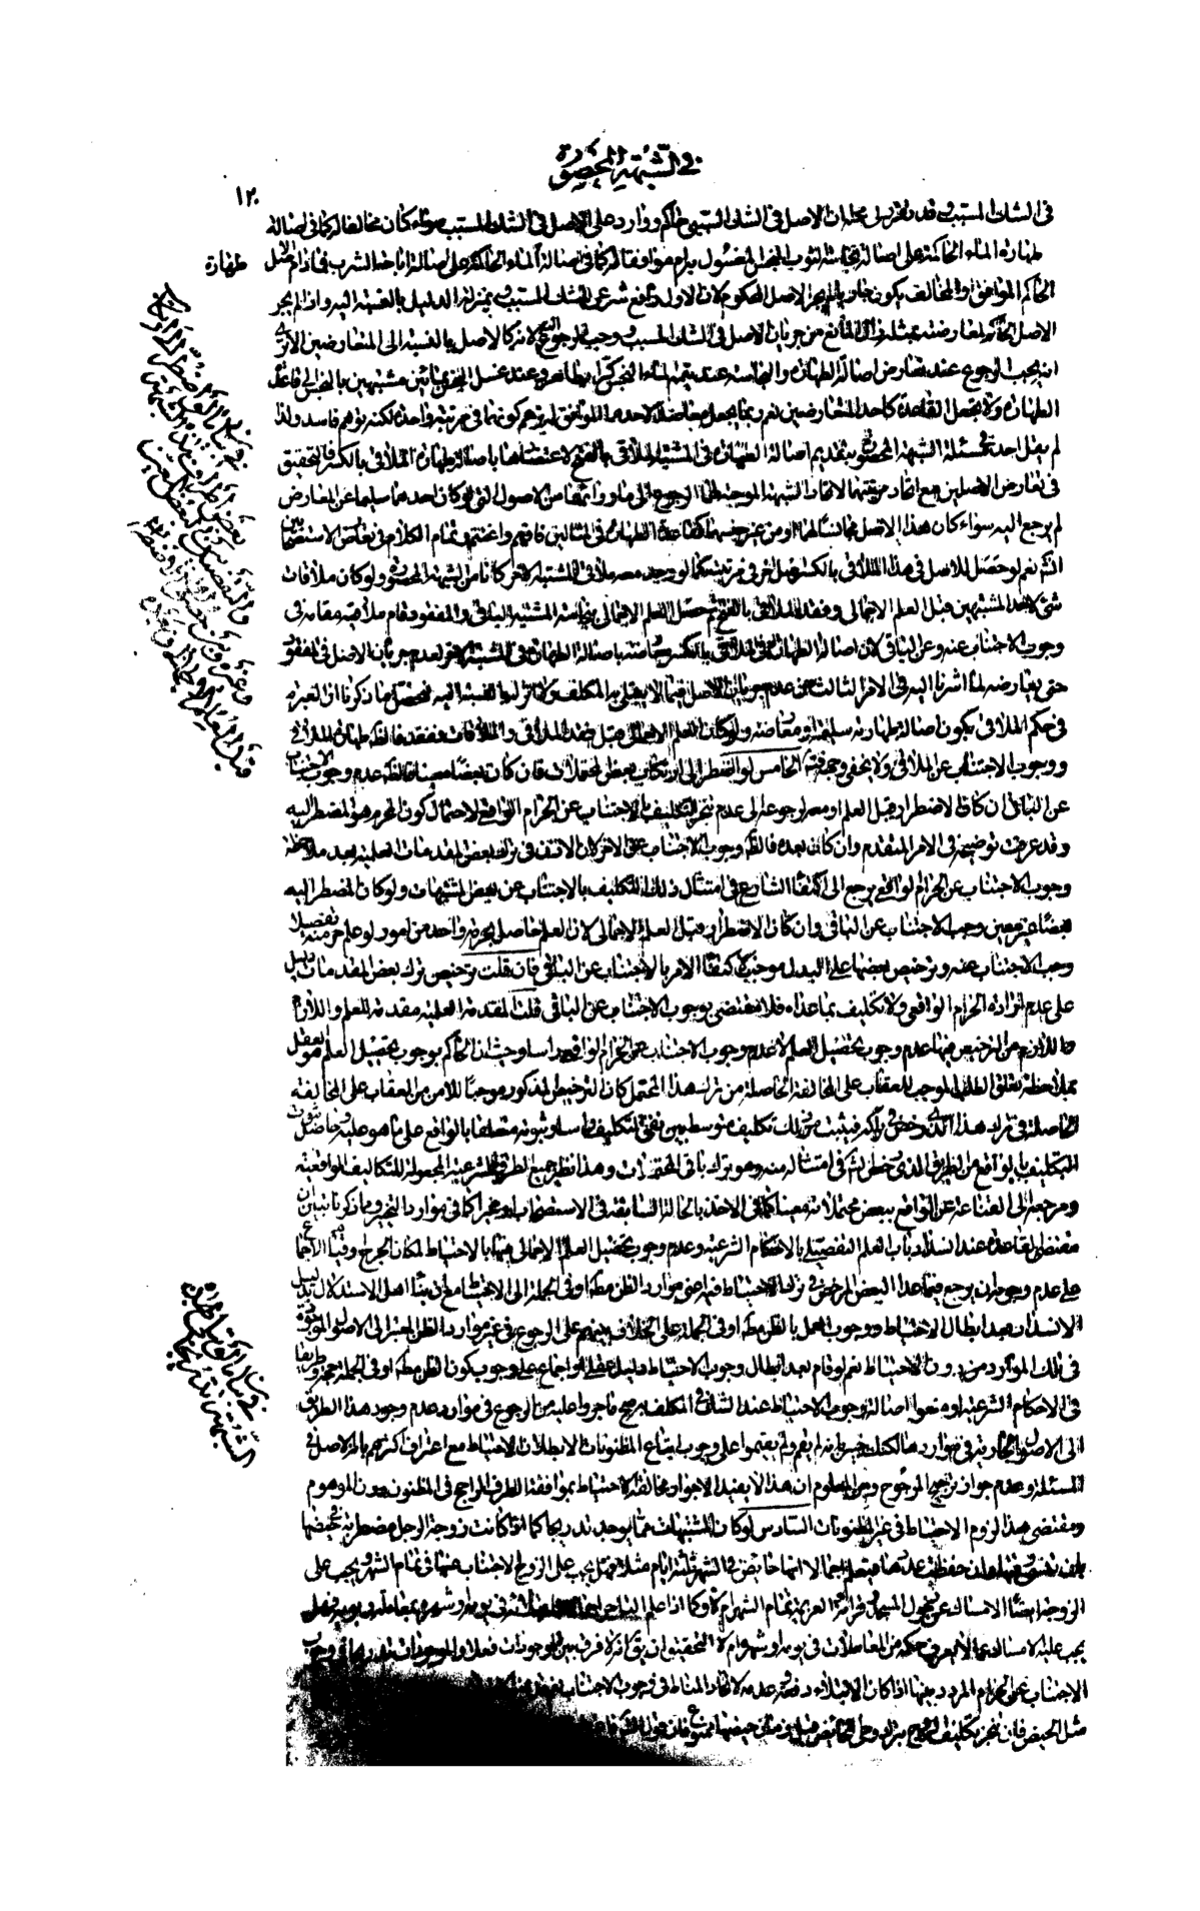 في الشبهة المحصورة
١٢٠
في الشك المسبب وقد تقرر في محله ان الاصل في الشك السببي حاكم ووارد على الاصل في الشك المسبب سواء كان مخالفا له كما في اصالة
طهارة الماء الحاكمة على اصالة نجاسة الثوب النجس المغسول به ام موافقا له كما في اصالة الماء الحاكمة على اصالة اباحة الشرب فما دام الاصل
طهارة
الحاكم الموافق او المخالف يكون جاريا لم يجر الاصل المحكوم لان الاول رافع شرعي للشك المسبب وبمنزلة الدليل بالنسبة اليه واذا لم يجر
الاصل الحاكم لمعارضته بمثله زال المانع من جريان الاصل في الشك المسبب ووجب الرجوع اليه لانه كالاصل بالنسبة الى المتعارضين الا ترى
انه يجب الرجوع عند تعارض اصالة الطهارة والنجاسة عند تتميم الماء النجس كرا بطاهر وعند غسل المحل النجس بمائين مشتبهين بالنجس الى قاعدة
الطهارة ولا تجعل القاعدة كاحد المتعارضين نعم ربما يجعل معاضدا لاحدهما الموافق له بزعم كونهما في مرتبة واحدة لكنه توهم فاسد ولذا
لم يقل احد في مسئلة الشبهة المحصورة بتقديم اصالة الطهارة في المشتبه الملاقى بالفتح لاعتضادها باصالة طهارة الملاقي بالكسر فالتحقيق
في تعارض الاصلين مع اتحاد مرتبتهما لاتحاد الشبهة الموجبة لهما الرجوع الى ما وراءهما من الاصول التي لو كان احدهما سليما عن المعارض
لم يرجع اليه سواء كان هذا الاصل مجانسا لهما او من غير جنسهما كقاعدة الطهارة في المثالين فافهم واغتنم وتمام الكلام في تعارض الاستصحابين
انشاء الله نعم لو حصل للاصل في هذا الملاقي بالكسر اصل اخر في مرتبته كما لو وجد معه ملاقي المشتبه الاخر كانا من الشبهة المحصورة ولو كان ملاقات
شئ لاحد المشتبهين قبل العلم الاجمالي وفقد الملاقى بالفتح ثم حصل العلم الاجمالي بنجاسة المشتبه الباقي او المفقود قام ملاقيه مقامه في
وجوب الاجتناب عنه وعن الباقي لان اصالة الطهارة في الملاقي بالكسر معارضة باصالة الطهارة في المشتبه الاخر لعدم جريان الاصل في المفقود
حتى يعارضه لما اشرنا اليه في الامر الثالث من عدم جريان الاصل فيما لا يبتلي به المكلف ولا اثر له بالنسبة اليه فمحصل ما ذكرنا ان العبرة
في حكم الملاقي بكون اصالة طهارته سليمة او معارضة ولو كان العلم الاجمالي قبل فقد الملاقى والملاقات ففقد فالظاهر طهارة الملاقي
ووجوب الاجتناب عن الملاقى ولا يخفى وجهه فتامل الخامس لو اضطر الى ارتكاب بعض المحتملات فان كان بعضا معينا فالظاهر عدم وجوب الاجتناب
عن الباقي ان كان الاضطرار قبل العلم او معه لرجوعه الى عدم تنجز التكليف بالاجتناب عن الحرام الواقعي لاحتمال كون المحرم هو المضطر اليه
وقد عرفت توضيحه في الامر المتقدم وان كان بعده فالظاهر وجوب الاجتناب عن الاخر لان الاذن في ترك بعض المقدمات العلمية بعد ملاحظة
وجوب الاجتناب عن الحرام الواقعي يرجع الى اكتفاء الشارع في امتثال ذلك التكليف بالاجتناب عن بعض المشتبهات ولو كان المضطر اليه
بعضا غير معين وجب الاجتناب عن الباقي وان كان الاضطرار قبل العلم الاجمالي لان العلم حاصل بحرمة واحد من امور لو علم حرمته تفصيلا
وجب الاجتناب عنه وترخيص بعضها على البدل موجب لاكتفاء الامر بالاجتناب عن الباقي فان قلت ترخيص ترك بعض المقدمات دليل
على عدم ارادة الحرام الواقعي ولا تكليف بما عداه فلا مقتضي لوجوب الاجتناب عن الباقي قلت المقدمة العلمية مقدمة للعلم واللازم
من الترخيص فيها عدم وجوب تحصيل العلم لا عدم وجوب الاجتناب عن الحرام الواقعي راسا وحيث ان الحاكم بوجوب تحصيل العلم هو العقل
بملاحظة تعلق الطلب الموجب للعقاب على المخالفة الحاصلة من ترك هذا المحتمل كان الترخيص المذكور موجبا للامن من العقاب على المخالفة
الحاصلة في ترك هذا الذي رخص في تركه فيثبت من ذلك تكليف متوسط بين نفي التكليف راسا وثبوته متعلقا بالواقع على ما هو عليه وحاصله ثبوت
التكليف بالواقع من الطريق الذي رخص الشارع في امتثاله منه وهو ترك باقي المحتملات وهذا نظير جميع الطرق الشرعية المجعولة للتكاليف الواقعية
ومرجعه الى القناعة عن الواقع ببعض محتملاته معينا كما في الاخذ بالحالة السابقة في الاستصحاب او مخيرا كما في موارد التخيير ومما ذكرنا تبين ان
مقتضى القاعدة عند انسداد باب العلم التفصيلي بالاحكام الشرعية وعدم وجوب تحصيل العلم الاجمالي فيها بالاحتياط لمكان الحرج او قيام الاجماع
على عدم وجوبه ان يرجع فيما عدا البعض المرخص في ترك الاحتياط فيه اعني موارد الظن مطلقا او في الجملة الى الاحتياط مع ان بناء اهل الاستدلال بدليل
الانسداد بعد ابطال الاحتياط ووجوب العمل بالظن مطلقا او في الجملة على الخلاف بينهم على الرجوع في غير موارد الظن المعتبر الى الاصول الموجودة
في تلك الموارد من دون الاحتياط نعم لو قام بعد ابطال وجوب الاحتياط دليل عقلي او اجماع على وجوب كون الظن مطلقا او في الجملة حجة وطريقا
في الاحكام الشرعية او منعوا اصالة وجوب الاحتياط عند الشك في المكلف به صح ما جروا عليه من الرجوع في موارد عدم وجود هذا الطريق
الى الاصول الجارية في مواردها لكنك خبير بانه لم يقم ولم يقيموا على وجوب اتباع المظنونات الا بطلان الاحتياط مع اعتراف اكثرهم بانه الاصل في
المسئلة وعدم جواز ترجيح المرجوح ومن المعلوم ان هذا لا يفيد الا جواز مخالفة الاحتياط بموافقة الطرف الراجح في المظنون دون الموهوم
ومقتضى هذا لزوم الاحتياط في غير المظنونات السادس لو كان المشتبهات مما يوجد تدريجا كما اذا كانت زوجة الرجل مضطربة في حيضها
بان تنسى وقتها وان حفظت عددها فيعلم اجمالا انها حائض في الشهر ثلثة ايام مثلا فهل يجب على الزوج الاجتناب عنها في تمام الشهر ويجب على
الزوجة ايضا الامساك عن دخول المسجد وقرائة العزيمة تمام الشهر ام لا وكما اذا علم التاجر اجمالا بابتلائه في يومه او شهره بمعاملة ربوية فهل
يجب عليه الامساك عما لا يعرف حكمه من المعاملات في يومه او شهره ام لا التحقيق ان يقال انه لا فرق بين الموجودات فعلا والموجودات تدريجا في وجوب
الاجتناب عن الحرام المردد بينها اذا كان الابتلاء دفعة وعدمه لاتحاد المناط في وجوب الاجتناب
مثل الحيض فان تنجز تكليف الزوج بترك وطي الحائض قبل زمان حيضها ممنوع فان قول الشارع